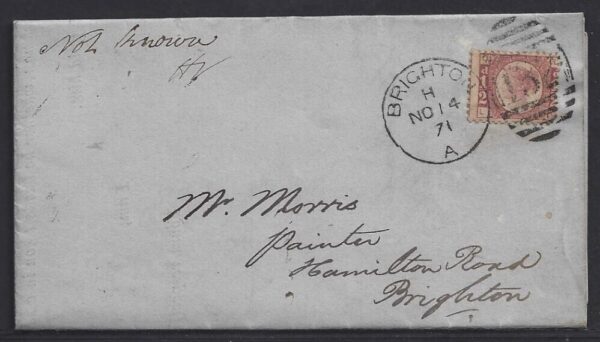 Not known
HV
BRIGHTON
H
NO 14
71
A
1/2
Mr. Morris
Painter
Hamilton Road
Brighton